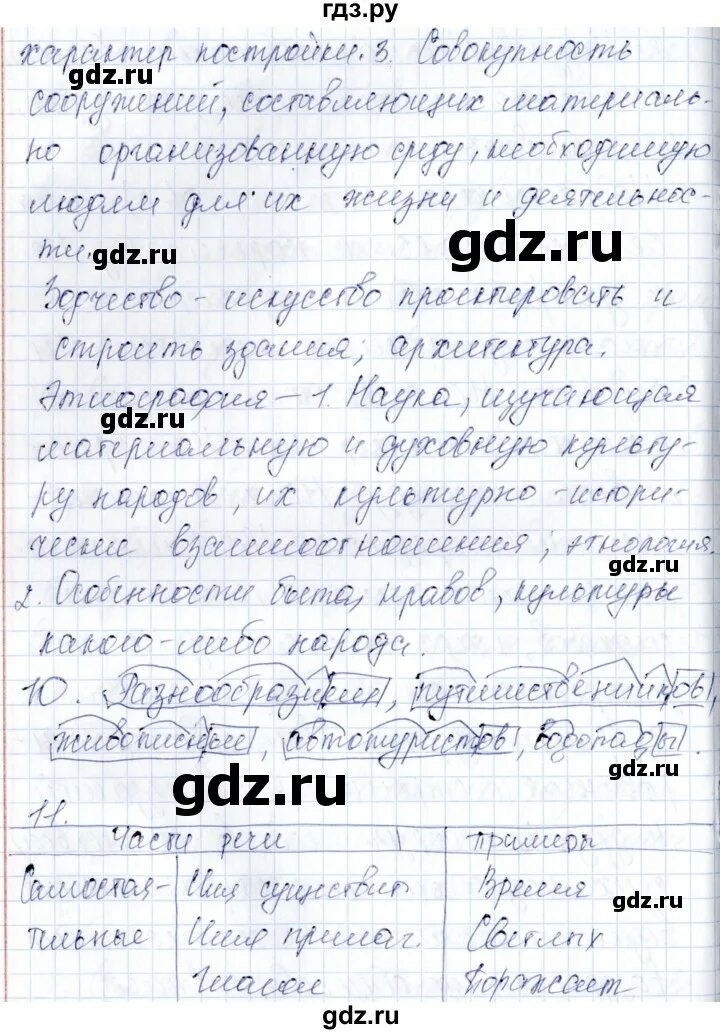 гдз.ру
характер постройки. 3. Совокупность
gdz.ru
сооружений, составляющих материаль-
но организованную среду, необходимую
людям для их жизни и деятельнос-
ти.
gdz.ru
gdz.ru
Зодчество - искусство проектировать и
строить здания; архитектура.
Этнография - 1. Наука, изучающая
gdz.ru
материальную и духовную культу-
ру народов, их культурно-истори-
ческие взаимоотношения; этнология.
gdz.ru
2. Особенности быта, нравов, культуры
какого-либо народа.
gdz.ru
10. Разнообразием, путешественников,
живописные, автотуристов, водопады.
gdz.ru
11.
Части речи Примеры
Самостоя- Имя существит. Время
gdz.ru
тельные Имя прилаг. Светлых
Глагол Поражает
gdz.ru